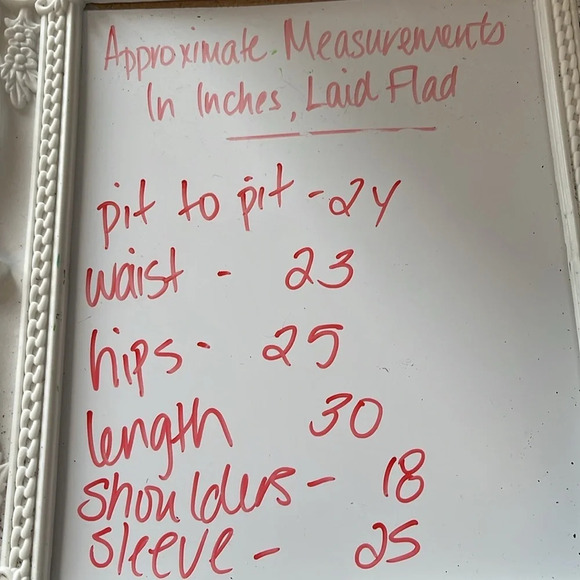 Approximate Measurements
In Inches, Laid Flad
pit to pit - 24
waist - 23
hips - 25
length 30
shoulders - 18
sleeve - 25